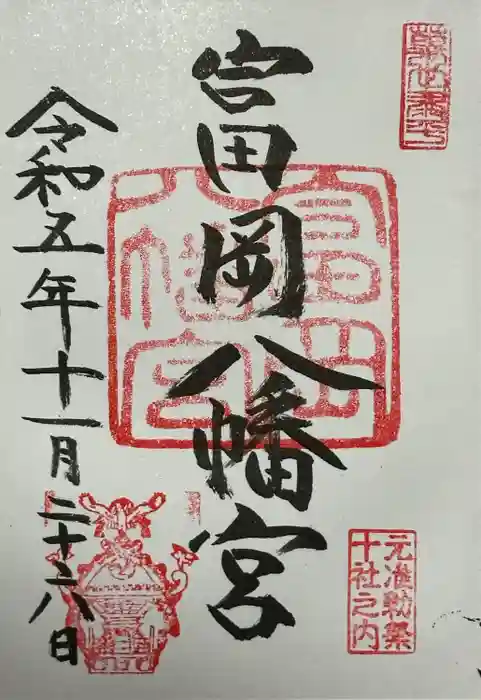 富岡八幡宮
令和五年十一月二十六日
元准勅祭
十社之内